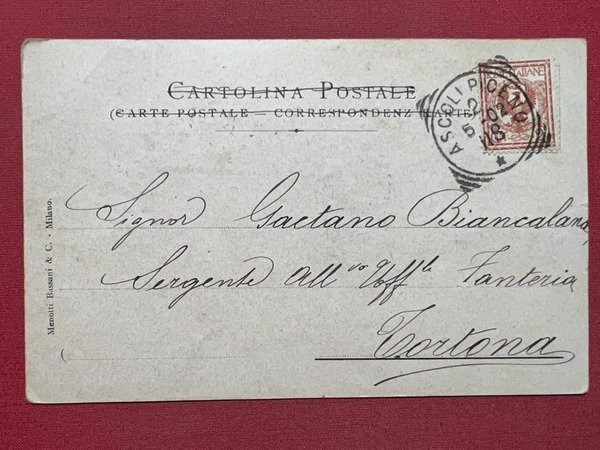 CARTOLINA POSTALE
(CARTE POSTALE — CORRESPONDENZ KARTE)
ITALIANE
ASCOLI PICENO
2
5-02
18
Signor Gaetano Biancalana
Sergente All° Uff.le Fanteria
Tortona
Menotti Bassani & C. - Milano.